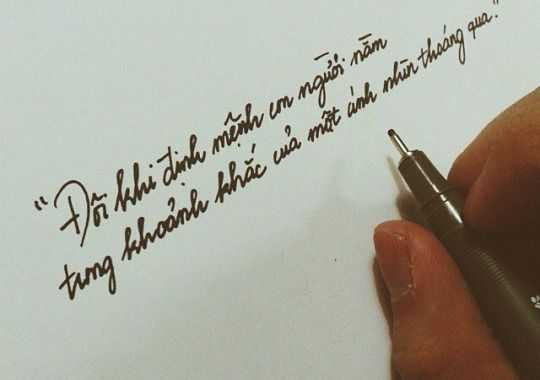 "Đôi khi định mệnh con người nằm
trong khoảnh khắc của một ánh nhìn thoáng qua."